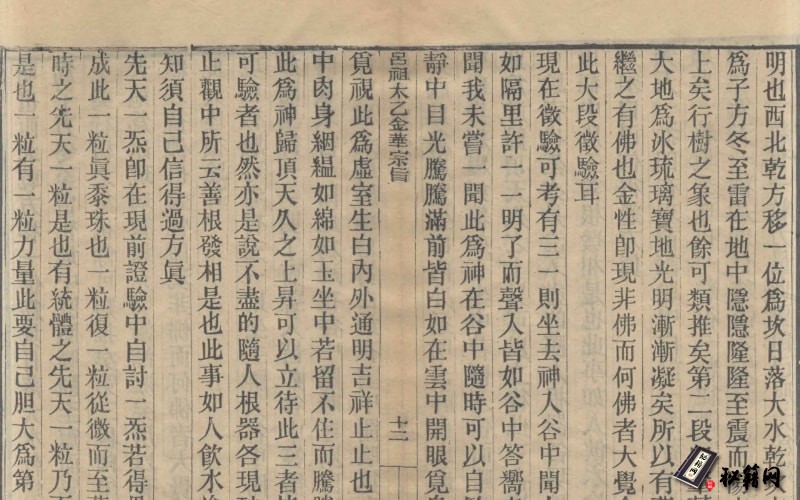 明也西北乾方移一位爲坎日落大水乾
爲子方冬至雷在地中隱隱隆隆至震而
上矣行樹之象也餘可類推矣第二段
大地爲冰琉璃寶地光明漸漸凝矣所以有
繼之有佛也金性卽現非佛而何佛者大覺
此大段徵驗耳
現在徵驗可考有三一則坐去神入谷中聞
如隔里許一一明了而聲入皆如谷中答嚮
聞我未嘗一聞此爲神在谷中隨時可以自
靜中目光騰騰滿前皆白如在雲中開眼覓
呂祖太乙金華宗旨
十二
覓視此爲虛室生白內外通明吉祥止止也
中肉身絪縕如綿如玉坐中若留不住而騰
此爲神歸頂天久之上昇可以立待此三者
可驗者也然亦是說不盡的隨人根器各現
止觀中所云善根發相是也此事如人飲水
知須自己信得過方眞
先天一炁卽在現前證驗中自討一炁若得
成此一粒眞黍珠也一粒復一粒從微而至
時之先天一粒是也有統體之先天一粒乃
是也一粒有一粒力量此要自己胆大爲第
秘籍网